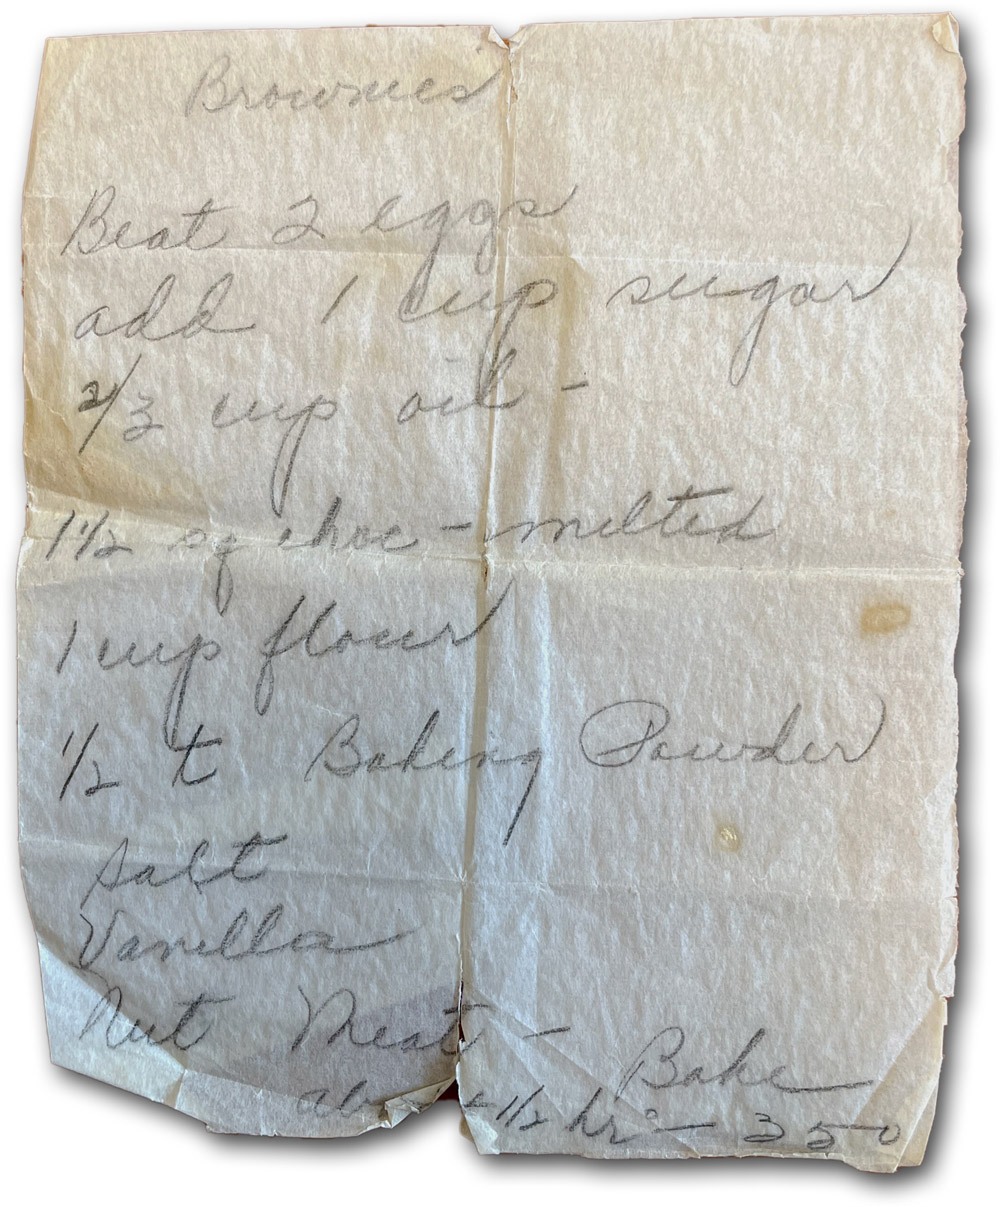 Brownies
Beat 2 eggs
add 1 cup sugar
2/3 cup oil -
1 1/2 sq choc - melted
1 cup flour
1/2 t Baking Powder
salt
Vanilla
Nut Meat - Bake
1/2 hr - 350